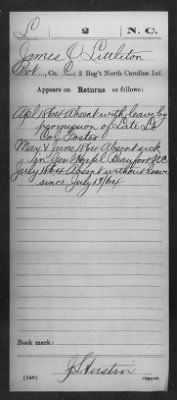 L 2 N. C.
James Littleton
Pvt., Co. C, 2 Reg't North Carolina Inf.
Appears on Returns as follows:
Apl 1864 Absent with leave by
permission of Late Lt
Col. Foster
May & June 1864 Absent sick
in Gen Hospl Beaufort N.C.
July 1864 Absent without leave
since July 13/64
Book mark:
(546) Copyist.